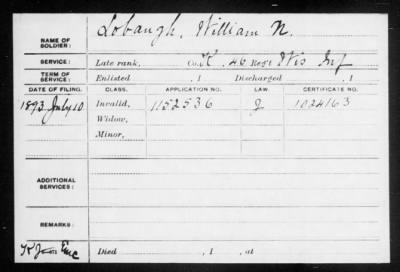 NAME OF SOLDIER: Lobaugh, William N.
SERVICE: Late rank, Co. K, 46 Reg't Wis Inf
TERM OF SERVICE: Enlisted , 1 Discharged , 1
DATE OF FILING. CLASS. APPLICATION NO. LAW. CERTIFICATE NO.
1893 July 10 Invalid, 1152536 J 1024163
Widow,
Minor,
ADDITIONAL SERVICES:
REMARKS:
K
Died , 1 , at